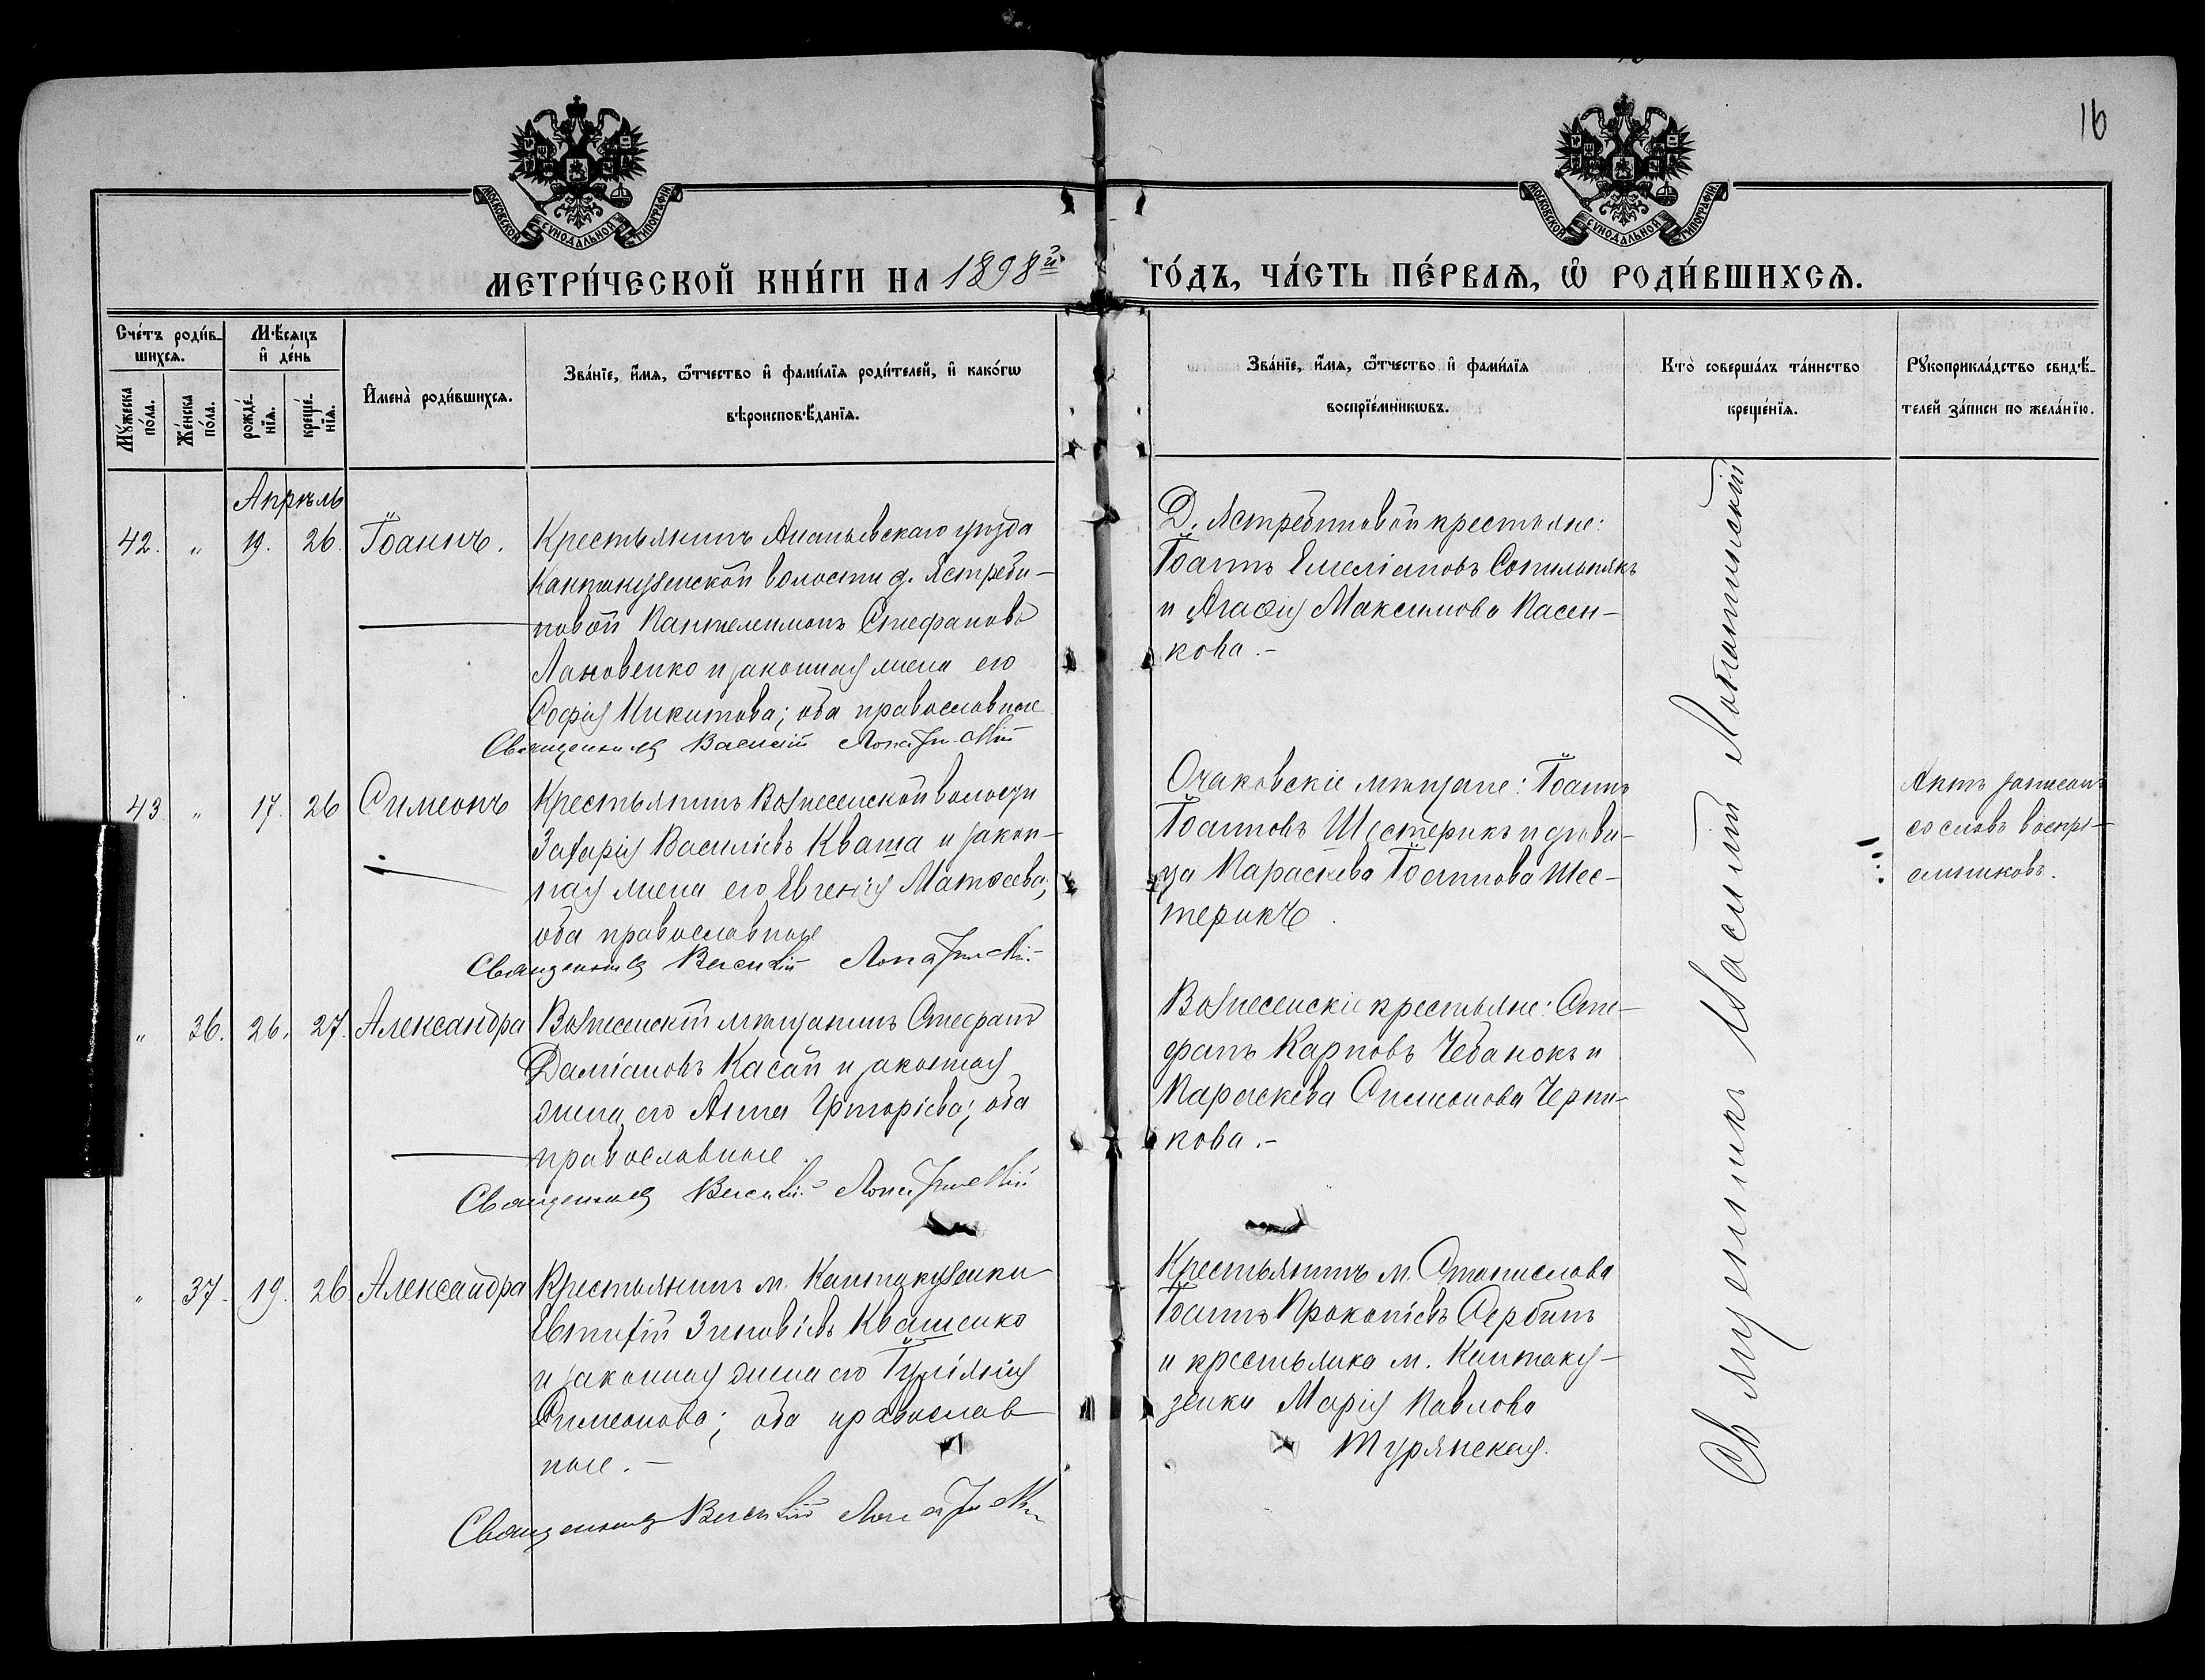 16
МОСКОВСКОЙ СѴНОДАЛЬНОЙ ТИПОГРАФІИ
МОСКОВСКОЙ СѴНОДАЛЬНОЙ ТИПОГРАФІИ
МЕТРИ́ЧЕСКОЙ КНИ́ГИ НА 1898й ГО́ДЪ, ЧА́СТЬ ПЕ́РВАѦ, Ѡ РОДИ́ВШИХСѦ.
Сче́тъ роди́в-
шихся.
Мѣ́сяцъ
и҆ де́нь
Му́жеска
по́ла.
Же́нска
по́ла.
рожде́-
нїя.
креще́-
нїя.
И҆мена̀ роди́вшихся.
Зва́нїе, и҆́мя, ѻ҆́тчество и҆ фами́лїя роди́телей, и҆ како́гѡ
вѣроисповѣ́данїя.
Зва́нїе, и҆́мя, ѻ҆́тчество и҆ фами́лїя
воспрїе́мникѡвъ.
Кто̀ соверша́лъ та́инство
креще́нїя.
Рꙋкоприкла́дство свидѣ́-
телей за́писи по жела́нїю.
Апрѣль
42. " 19. 26. Іоаннъ.
Крестьянинъ Ананьевскаго уѣзда
Кантакузенской волости д. Ястреби-
новой Пантелеимонъ Стефановъ
Лановенко и законная жена его
Софія Никитова; оба православные
Священникъ Василій Лопатинскій
Д. Ястребиновой крестьяне:
Іоаннъ Емеліановъ Сотильнякъ
и Агаѳія Максимова Пасен-
кова.-
43. " 17. 26 Симеонъ
Крестьянинъ Вознесенской волости
Захарія Василіевъ Кваша и закон-
ная жена его Евгенія Матѳеева;
оба православные
Священникъ Василій Лопатинскій
Очаковскіе мѣщане: Іоаннъ
Іоанновъ Шестерикъ и дѣви-
ца Параскева Іоаннова Шес-
терикъ.
Актъ записанъ
со словъ воспрі-
емниковъ.
" 36. 26. 27. Александра
Вознесенскій мѣщанинъ Стефанъ
Даміановъ Касай и законная
жена его Анна Григоріева; оба
православные.
Священникъ Василій Лопатинскій
Вознесенскіе крестьяне: Сте-
фанъ Карповъ Чебанокъ и
Параскева Симеонова Черни-
кова.-
" 37. 19. 26 Александра
Крестьянинъ м. Кантакузенки
Евтихій Зиновіевъ Квашенко
и законная жена его Іуліанія
Симеонова; оба православ
ные.-
Священникъ Василій Лопатинскій
Крестьянинъ м. Станислова
Іоаннъ Прокопіевъ Сербинъ
и крестьянка м. Кантаку-
зенки Марія Павлова
Турянская.
Священникъ Василій Лопатинскій